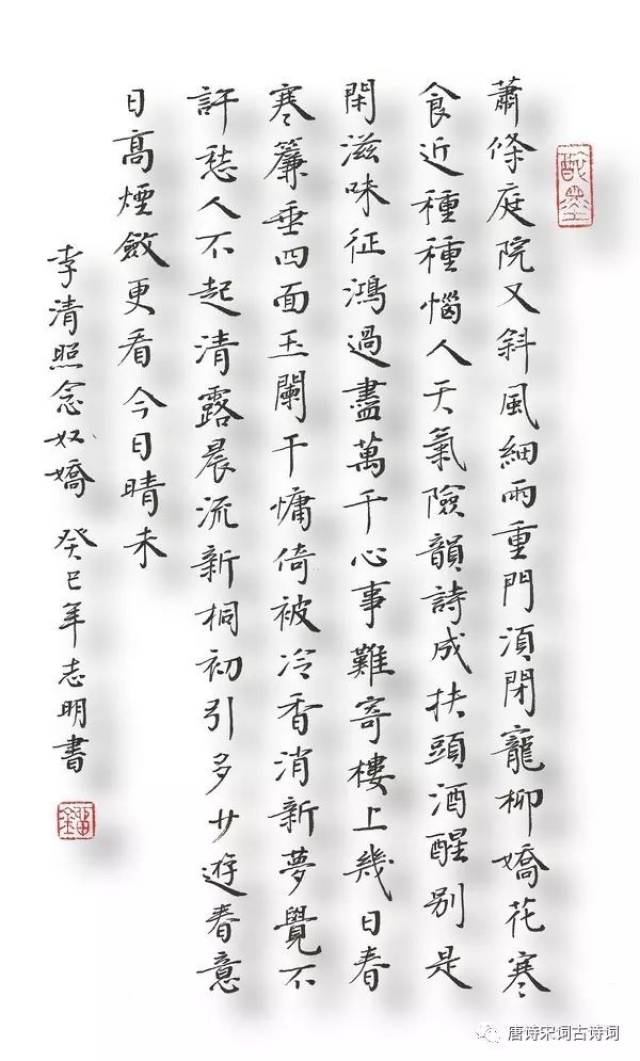 蕭條庭院又斜風細雨重門須閉寵柳嬌花寒
食近種種惱人天氣險韻詩成扶頭酒醒別是
閑滋味征鴻過盡萬千心事難寄樓上幾日春
寒簾垂四面玉闌干慵倚被冷香消新夢覺不
許愁人不起清露晨流新桐初引多少遊春意
日高煙斂更看今日晴未
李清照念奴嬌 癸巳年志明書
唐诗宋词古诗词